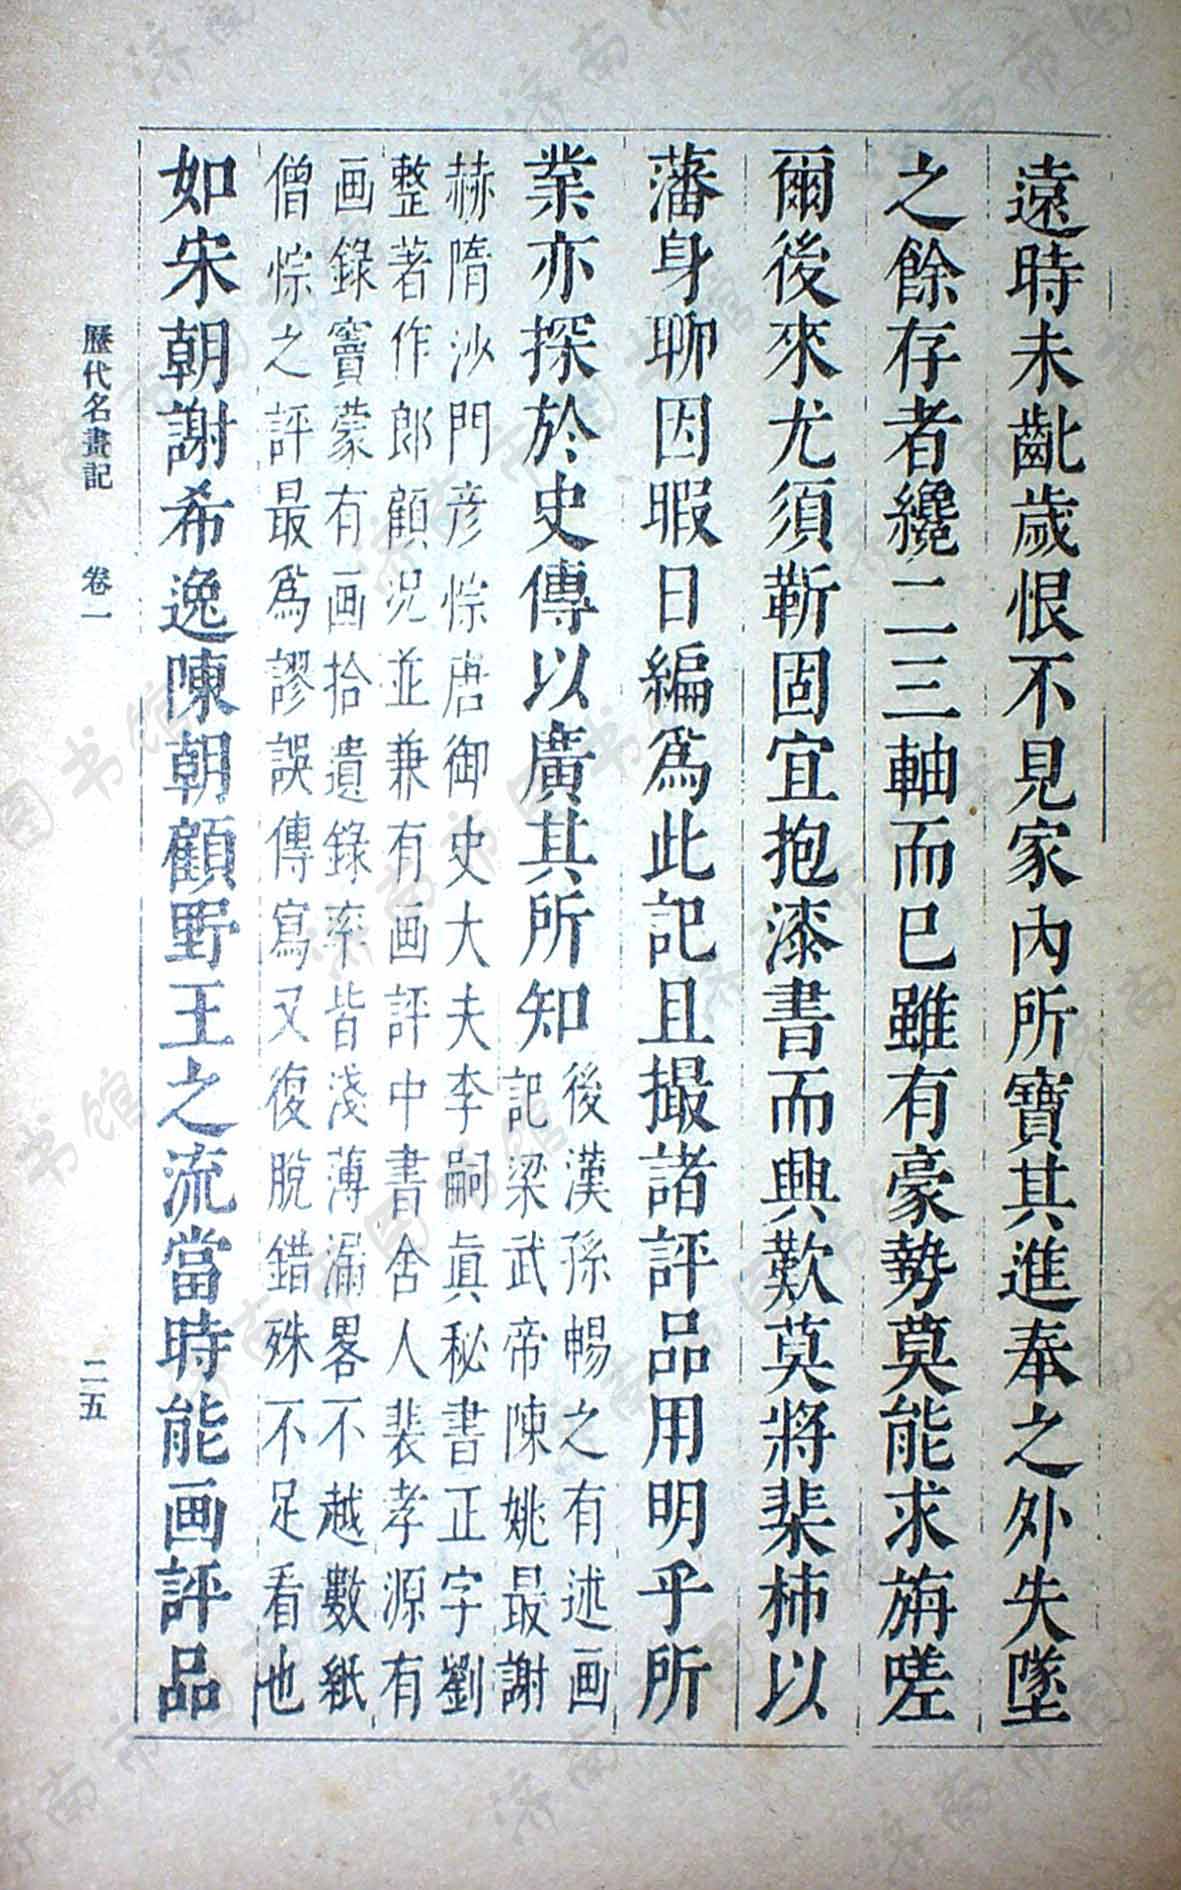 遠時未齔歲恨不見家內所寶其進奉之外失墜
之餘存者纔二三軸而已雖有豪勢莫能求旃嗟
爾後來尤須靳固宜抱漆書而興歎莫將棐柿以
藩身聊因暇日編爲此記且撮諸評品用明乎所
業亦探於史傳以廣其所知
後漢孫暢之有述画
記梁武帝陳姚最謝
赫隋沙門彦悰唐御史大夫李嗣真秘書正字劉
整著作郎顧况並兼有画評中書舍人裴孝源有
画錄竇蒙有画拾遺錄率皆淺薄漏畧不越數紙
僧悰之評最爲謬誤傳寫又復脫錯殊不足看也
如宋朝謝希逸陳朝顧野王之流當時能画評品
歷代名畫記 卷一 二五
济南市图书馆